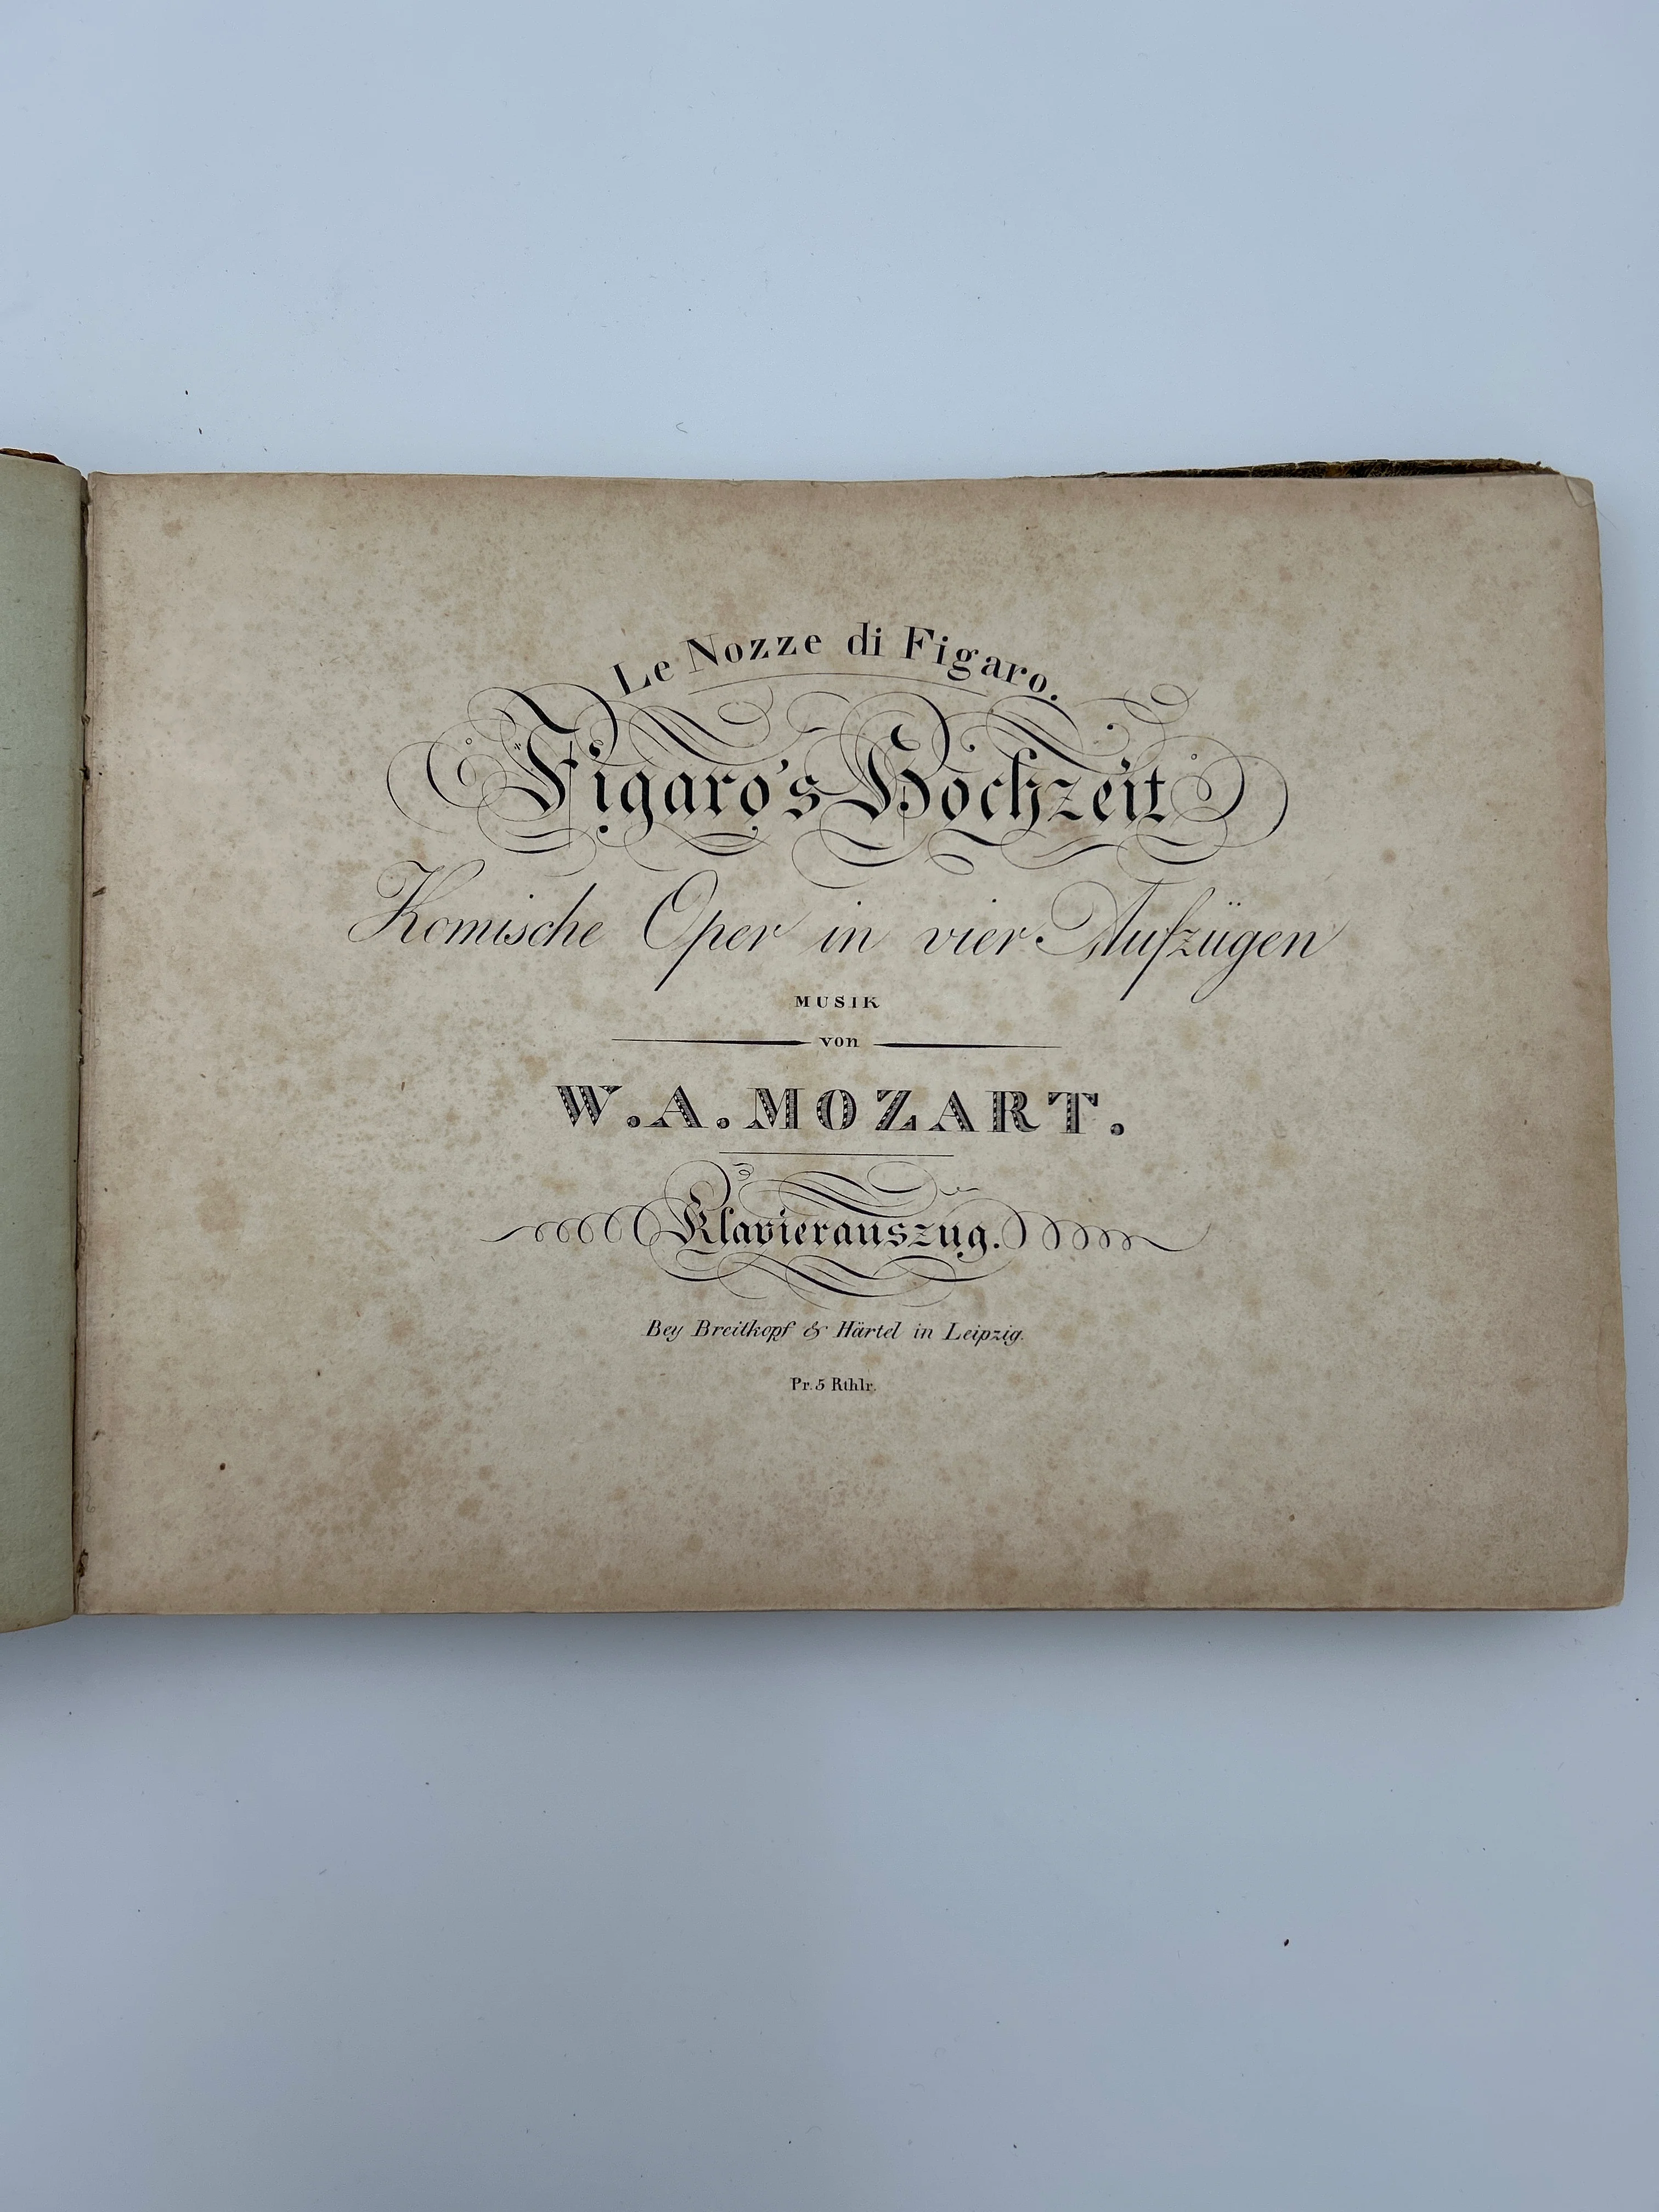 Le Nozze di Figaro.
Figaro's Hochzeit
Komische Oper in vier Aufzügen
MUSIK
von
W. A. MOZART.
Klavierauszug.
Bey Breitkopf & Härtel in Leipzig.
Pr. 5 Rthlr.